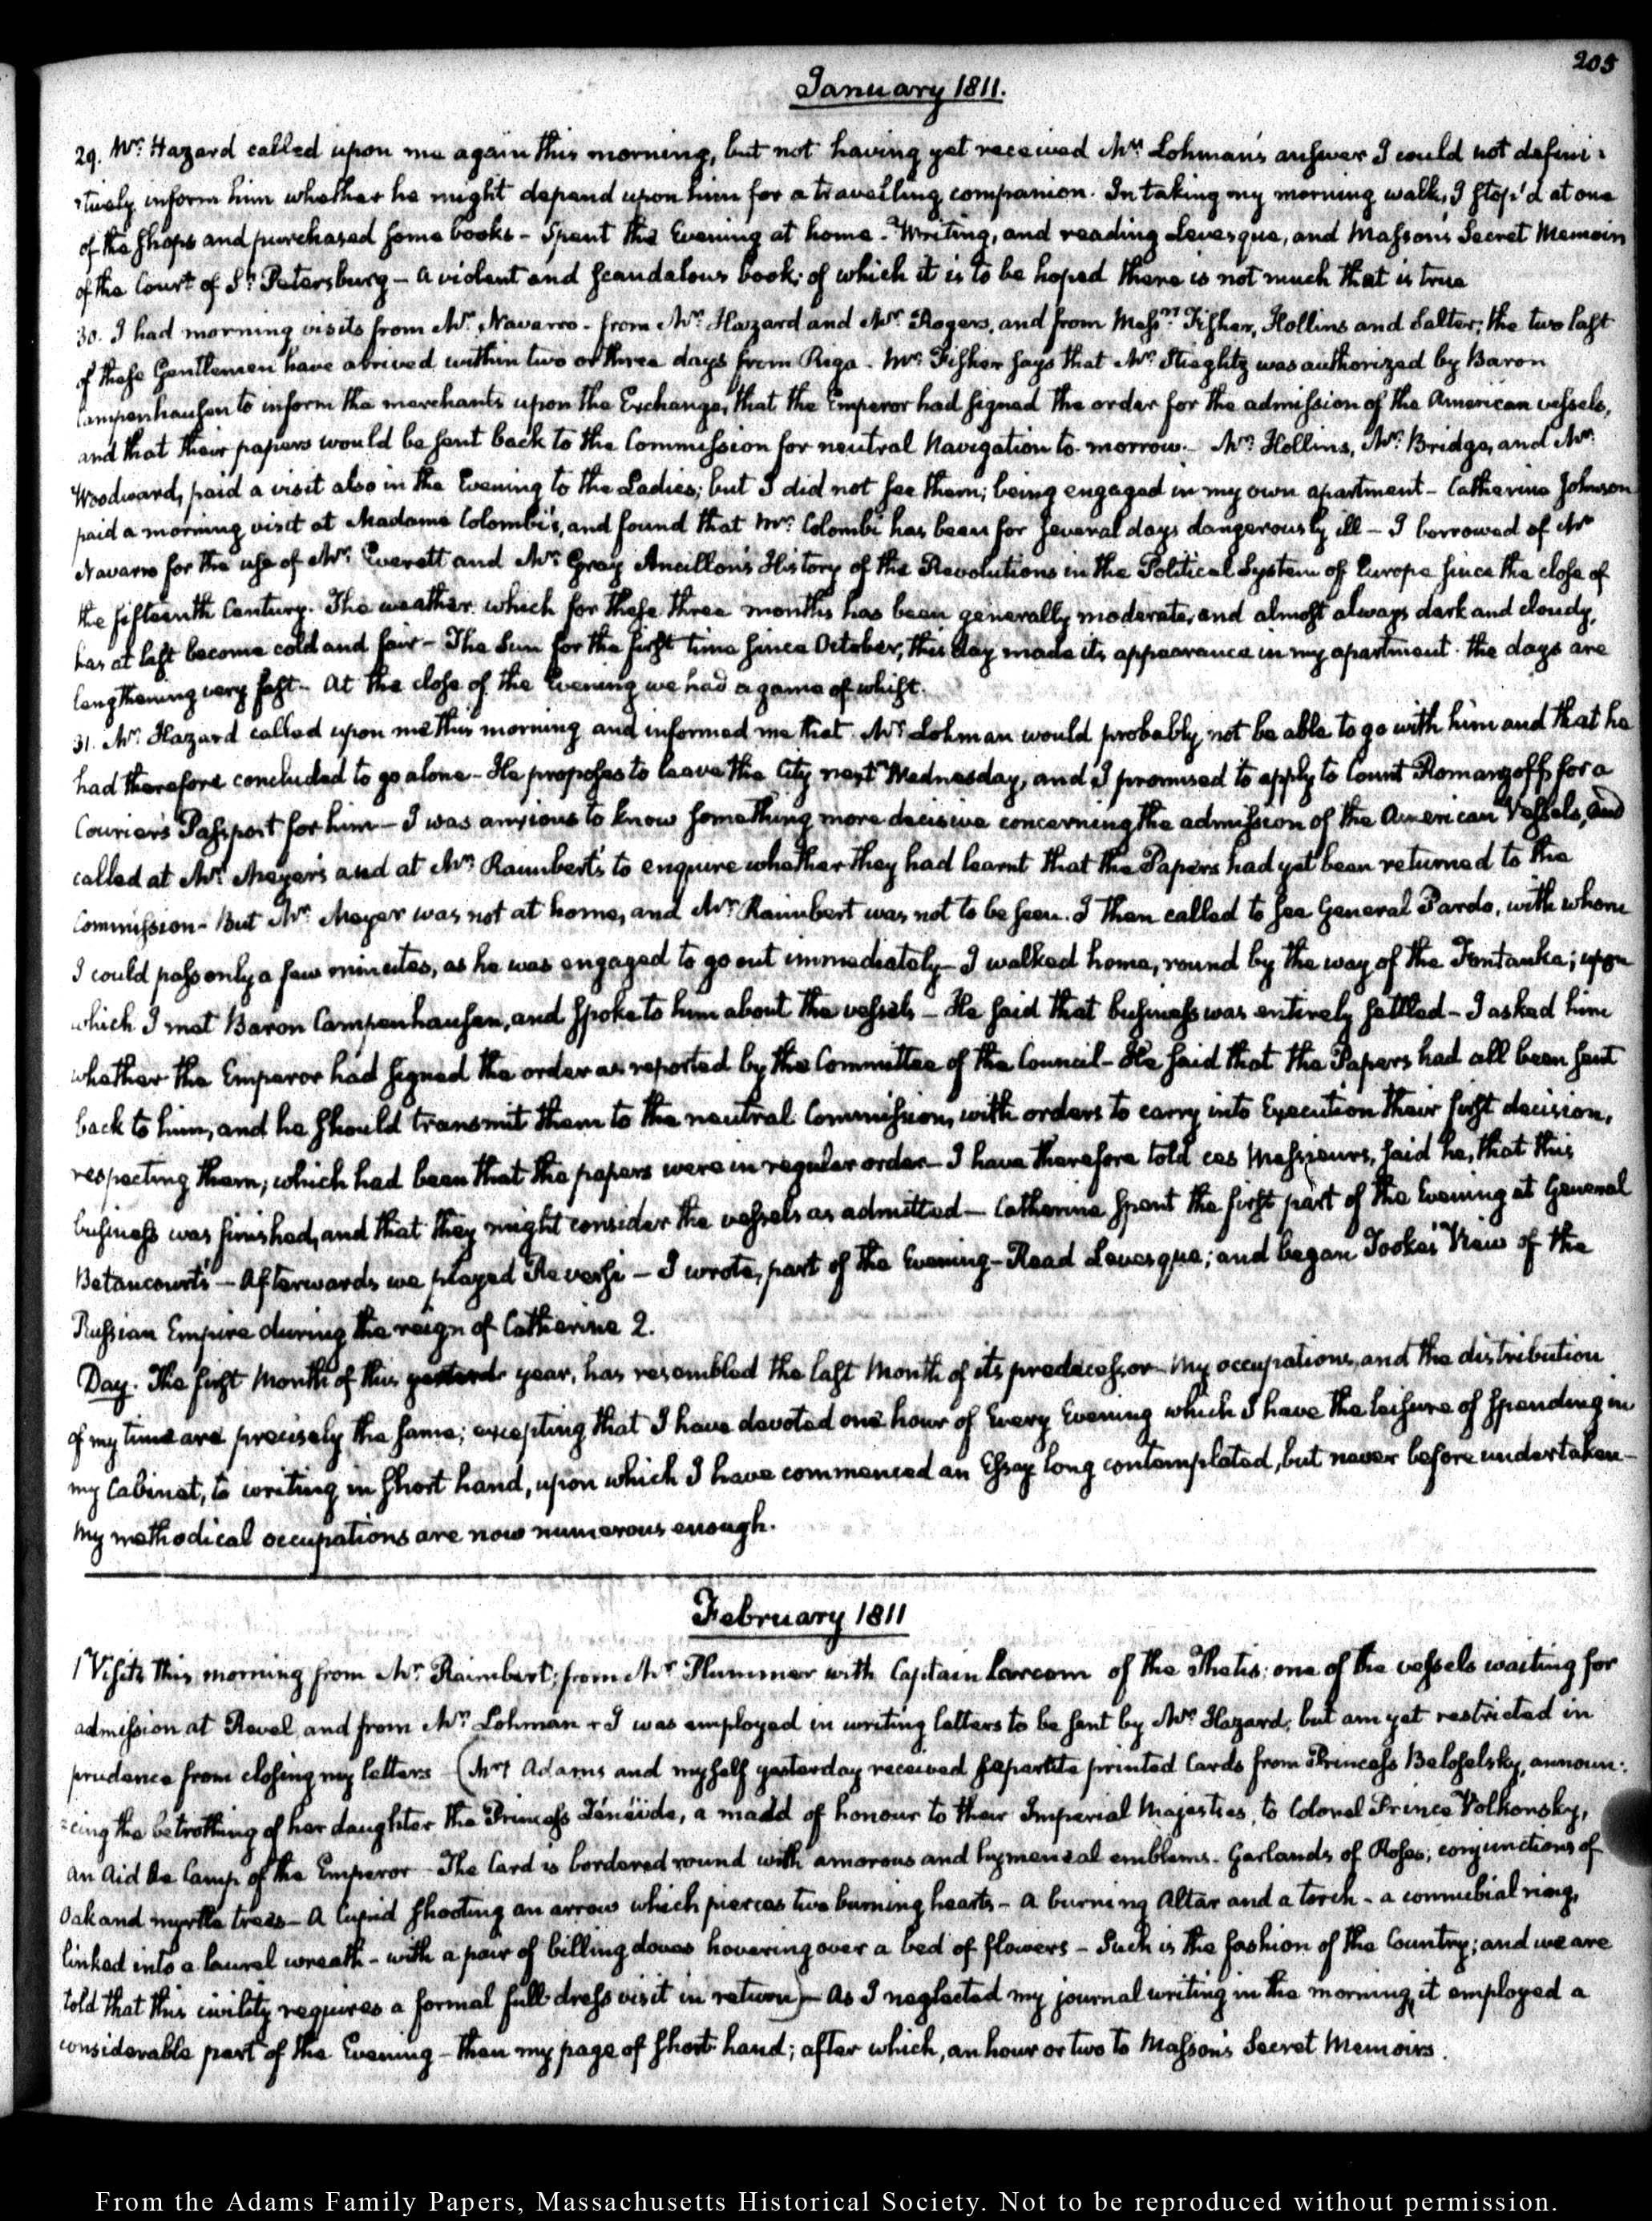 205
January 1811.
29. Mr. Hazard called upon me again this morning, but not having yet received Mr. Lohman's answer I could not defini:
:tively inform him whether he might depend upon him for a travelling companion. In taking my morning walk, I stop'd at one
of the shops and purchased some books - Spent the Evening at home - Writing, and reading Levesque, and Masson's Secret Memoirs
of the Court of St. Petersburg - A violent and scandalous book; of which it is to be hoped there is not much that is true
30. I had morning visits from Mr. Navarro - from Mr. Hazard and Mr. Rogers, and from Messrs. Fisher, Hollins and Salter; the two last
of these Gentlemen have arrived within two or three days from Riga - Mr. Fisher says that Mr. Stieglitz was authorized by Baron
Campenhausen to inform the merchants upon the Exchange, that the Emperor had signed the order for the admission of the American vessels,
and that their papers would be sent back to the Commission for neutral Navigation to-morrow. - Mr. Hollins, Mr. Bridge, and Mr.
Woodward, paid a visit also in the Evening to the Ladies; but I did not see them; being engaged in my own apartment - Catherine Johnson
paid a morning visit at Madame Colombi's, and found that Mr. Colombi has been for several days dangerously ill - I borrowed of Mr.
Navarro for the use of Mr. Everett and Mr. Gray Ancillon's History of the Revolutions in the Political System of Europe since the close of
the fifteenth Century. The weather which for these three months has been generally moderate, and almost always dark and cloudy,
has at last become cold and fair - The Sun for the first time since October, this day made its appearance in my apartment. the days are
lengthening very fast - At the close of the Evening we had a game of whist.
31. Mr. Hazard called upon me this morning and informed me that Mr. Lohman would probably not be able to go with him and that he
had therefore concluded to go alone - He proposes to leave the City next Wednesday, and I promised to apply to Count Romanzoff, for a
Courier's Passport for him - I was anxious to know something more decisive concerning the admission of the American Vessels, and
called at Mr. Meyer's and at Mr. Raimbert's to enquire whether they had learnt that the Papers had yet been returned to the
Commission - But Mr. Meyer was not at home, and Mr. Raimbert was not to be seen. I then called to see General Pardo, with whom
I could pass only a few minutes, as he was engaged to go out immediately - I walked home, round by the way of the Fontanka; upon
which I met Baron Campenhausen, and spoke to him about the vessels - He said that business was entirely settled - I asked him
whether the Emperor had signed the order as reported by the Committee of the Council - He said that the Papers had all been sent
back to him, and he should transmit them to the neutral Commission, with orders to carry into Execution their first decision,
respecting them; which had been that the papers were in regular order - I have therefore told ces Messieurs, said he, that this
business was finished, and that they might consider the vessels as admitted - Catherine spent the first part of the Evening at General
Betancourt's - Afterwards we played Reversi - I wrote, part of the Evening - Read Levesque; and began Tooke's View of the
Russian Empire during the reign of Catherine 2.
Day. The first Month of this year, has resembled the last Month of its predecessor - My occupations, and the distribution
of my time are precisely the same; excepting that I have devoted one hour of Every Evening which I have the leisure of spending in
my Cabinet, to writing in short hand, upon which I have commenced an Essay long contemplated, but never before undertaken -
My methodical occupations are now numerous enough.
February 1811
1 Visits this morning from Mr. Raimbert; from Mr. Plummer with Captain Larcom of the Thetis: one of the vessels waiting for
admission at Revel and from Mr. Lohman - I was employed in writing letters to be sent by Mr. Hazard, but am yet restricted in
prudence from closing my letters - (Mrs. Adams and myself yesterday received separate printed Cards from Princess Beloselsky, announ:
:cing the betrothing of her daughter the Princess Zénéide, a maid of honour to their Imperial Majesties, to Colonel Prince Volkonsky,
an Aid de Camp of the Emperor - The Card is bordered round with amorous and hymeneal emblems - Garlands of Roses; conjunctions of
Oak and myrtle trees - A Cupid shooting an arrow which pierces two burning hearts - A burning Altar and a torch - a connubial ring,
linked into a laurel wreath - with a pair of billing doves hovering over a bed of flowers - Such is the fashion of the Country; and we are
told that this civility requires a formal full dress visit in return) - As I neglected my journal writing in the morning, it employed a
considerable part of the Evening - then my page of short-hand; after which, an hour or two to Masson's Secret Memoirs.
From the Adams Family Papers, Massachusetts Historical Society. Not to be reproduced without permission.